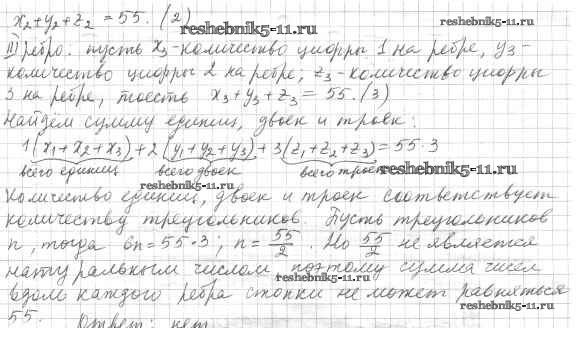 x₂+y₂+z₂ = 55. (2)
reshebnik5-11.ru
III ребро: пусть x₃-количество цифры 1 на ребре, y₃-
количество цифры 2 на ребре, z₃-количество цифры
3 на ребре, тоесть x₃+y₃+z₃ = 55. (3)
reshebnik5-11.ru
Найдем сумму единиц, двоек и троек:
1(x₁+x₂+x₃)+2(y₁+y₂+y₃)+3(z₁+z₂+z₃)=55·3
всего единиц всего двоек всего троек
reshebnik5-11.ru
reshebnik5-11.ru
Количество единиц, двоек и троек соответствует
количеству треугольников. Пусть треугольников
n, тогда 6n=55·3; n=55/2. Но 55/2 не является
натуральным числом поэтому сумма чисел
reshebnik5-11.ru
вдоль каждого ребра стопки не может равняться
55. Ответ: нет
reshebnik5-11.ru